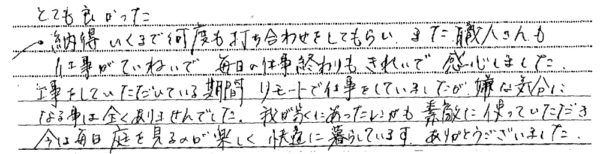 とても良かった
納得いくまで何度も打ち合わせをしてもらい また職人さんも
仕事がていねいで 毎日の仕事終わりもきれいで 感心しました.
工事をしていただいている期間 リモートで仕事をしていましたが 嫌な気分に
なる事は全くありませんでした. 我が家にあった も 素敵に使っていただき
今は毎日庭を見るのが楽しく 快適に暮らしています. ありがとうございました.